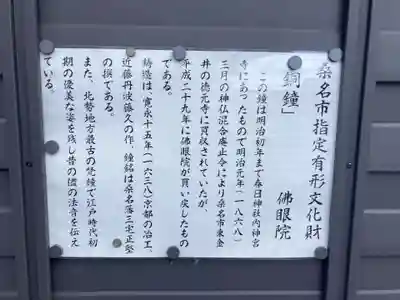 桑名市指定有形文化財
「銅鐘」
佛眼院
この鐘は明治初年まで春日神社内神宮
寺にあったもので明治元年(一八六八)
三月の神仏混合廃止令により桑名市東金
井の徳元寺に買収されていたが、
平成二十九年に佛眼院が買い戻したもの
である。
鋳造は、寛永十五年(一六三八)京都の冶工、
近藤丹波藤久の作、鐘銘は桑名藩三宅正堅
の撰である。
また、北勢地方最古の梵鐘で江戸時代初
期の優美な姿を残し昔の儘の法音を伝え
ている。